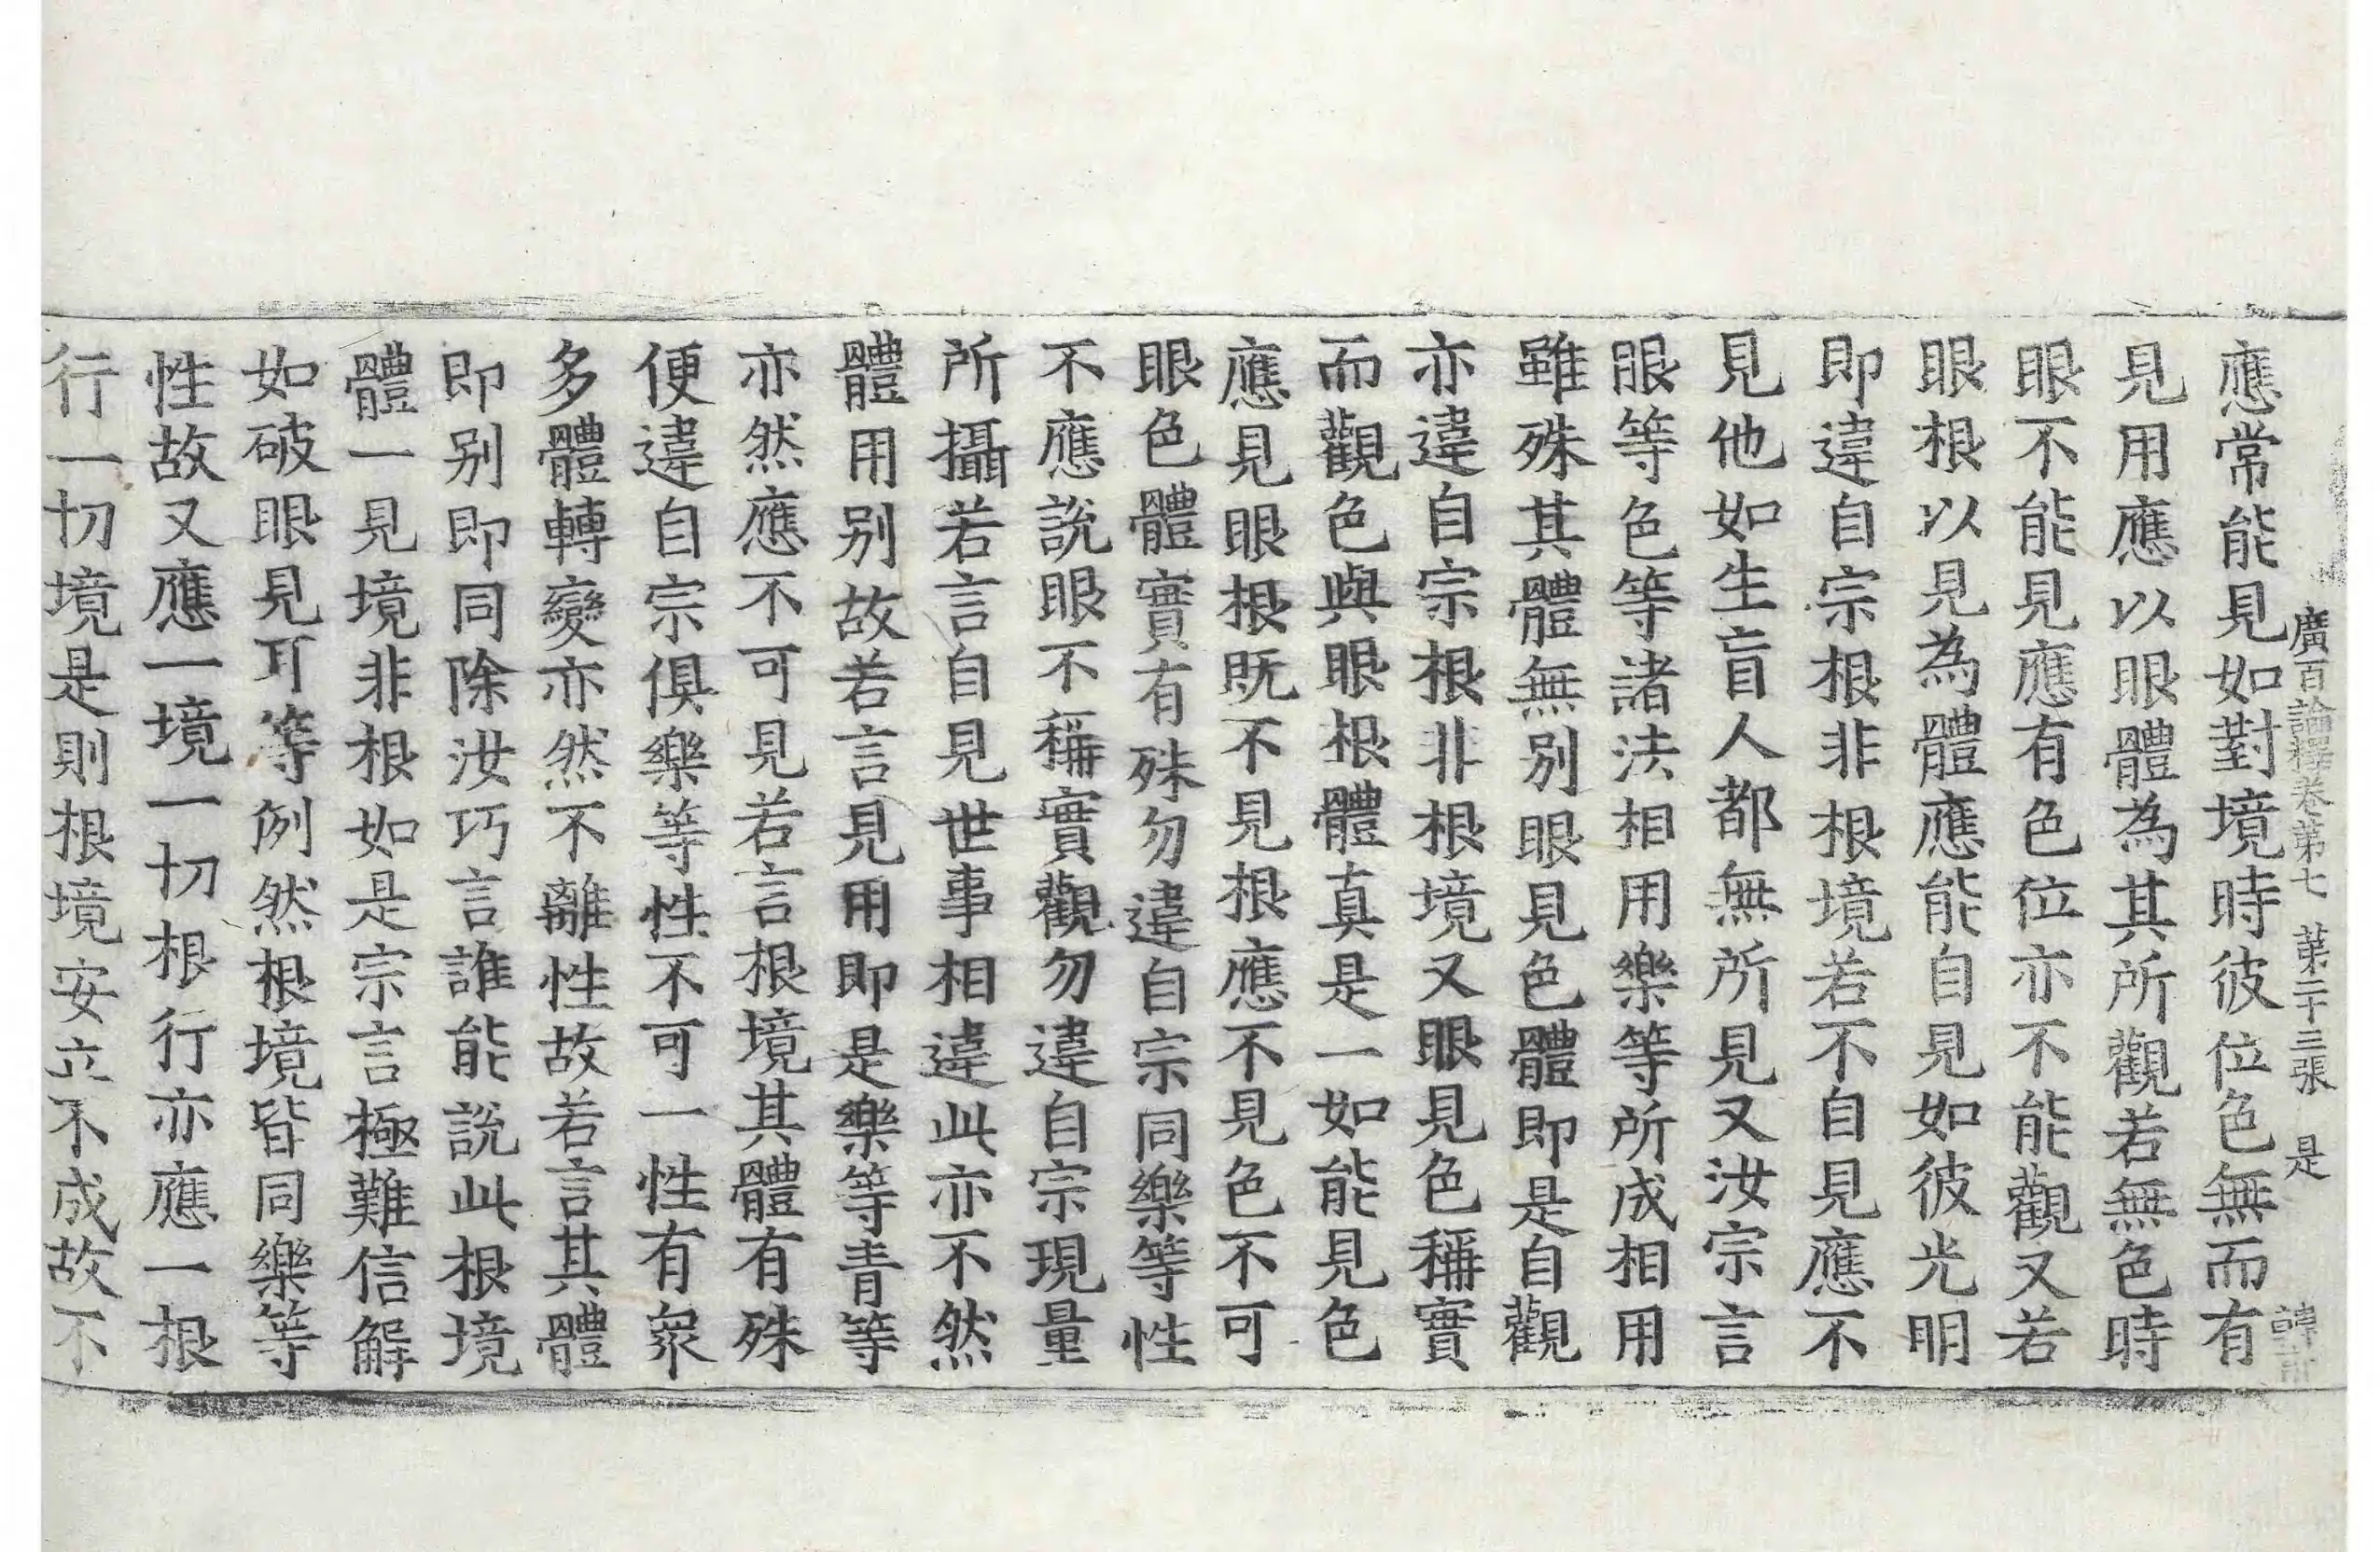 廣百論釋卷第七　第二十三張　是
應常能見如對境時彼位色無而有
見用應以眼體為其所觀若無色時
眼不能見應有色位亦不能觀又若
眼根以見為體應能自見如彼光明
即違自宗根非根境若不自見應不
見他如生盲人都無所見又汝宗言
眼等色等諸法相用樂等所成相用
雖殊其體無別眼見色體即是自觀
亦違自宗根非根境又眼見色稱實
而觀色與眼根體真是一如能見色
應見眼根既不見根應不見色不可
眼色體實有殊勿違自宗同樂等性
不應說眼不稱實觀勿違自宗現量
所攝若言自見世事相違此亦不然
體用別故若言見用即是樂等青等
亦然應不可見若言根境其體有殊
便違自宗俱樂等性不可一性有眾
多體轉變亦然不離性故若言其體
即別即同除汝巧言誰能說此根境
體一見境非根如是宗言極難信解
如破眼見耳等例然根境皆同樂等
性故又應一境一切根行亦應一根
行一切境是則根境安立不成故不